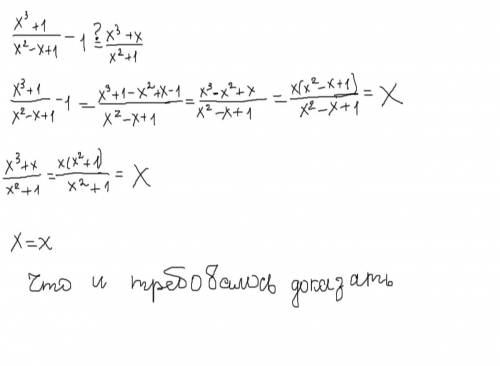 (x³+1)/(x²-x+1) - 1 ≟ (x³+x)/(x²+1)
(x³+1)/(x²-x+1) - 1 = (x³+1-x²+x-1)/(x²-x+1) = (x³-x²+x)/(x²-x+1) = (x(x²-x+1))/(x²-x+1) = X
(x³+x)/(x²+1) = (x(x²+1))/(x²+1) = X
X=x
Что и требовалось доказать